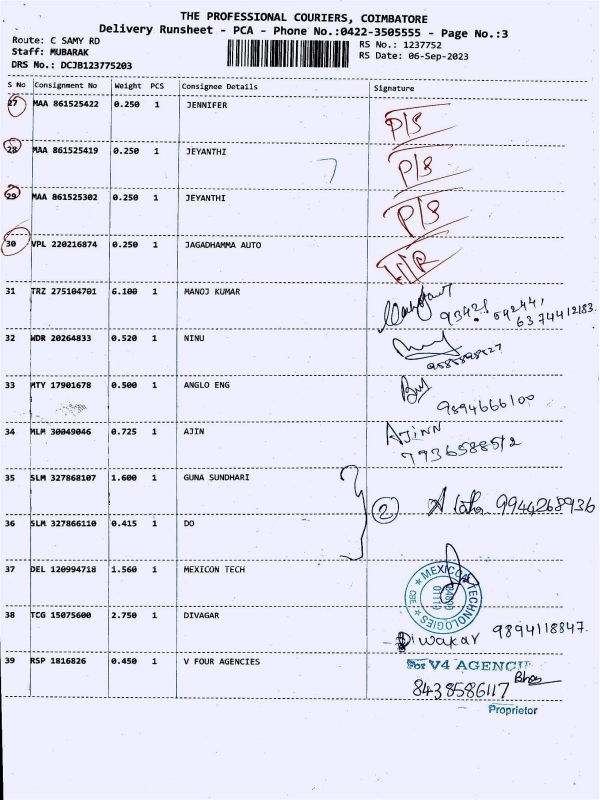 THE PROFESSIONAL COURIERS, COIMBATORE
Delivery Runsheet - PCA - Phone No.:0422-3505555 - Page No.:3
Route: C SAMY RD
Staff: MUBARAK
DRS No.: DCJB123775203
RS No.: 1237752
RS Date: 06-Sep-2023
S No Consignment No Weight PCS Consignee Details Signature
27 MAA 861525422 0.250 1 JENNIFER P/S
28 MAA 861525419 0.250 1 JEYANTHI P/S
29 MAA 861525302 0.250 1 JEYANTHI P/S
30 VPL 220216874 0.250 1 JAGADHAMMA AUTO
31 TRZ 275104701 6.100 1 MANOJ KUMAR
93421 04244,
6374412183.
32 WDR 20264833 0.520 1 NINU
33 MTY 17901678 0.500 1 ANGLO ENG
9894666100
34 MLM 30049046 0.725 1 AJIN AJINN
7936588512
35 SLM 327868107 1.600 1 GUNA SUNDHARI
2 9944268936
36 SLM 327866110 0.415 1 DO
37 DEL 120994718 1.560 1 MEXICON TECH
MEXICON TECHNOLOGIES CBE
38 TCG 15075600 2.750 1 DIVAGAR
Diwakar 9894118847.
39 RSP 1816826 0.450 1 V FOUR AGENCIES
For V4 AGENCIE
8438586117
Proprietor